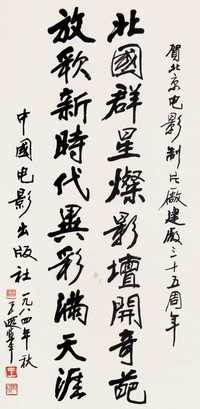 賀北京电影制片厰建厰三十五周年
北國群星燦影壇開奇葩
放歌新時代異彩滿天涯
中國电影出版社
一九八四年秋